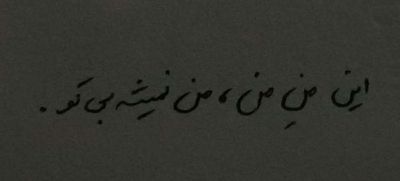 این منِ من ، من نمیشه بی تو .